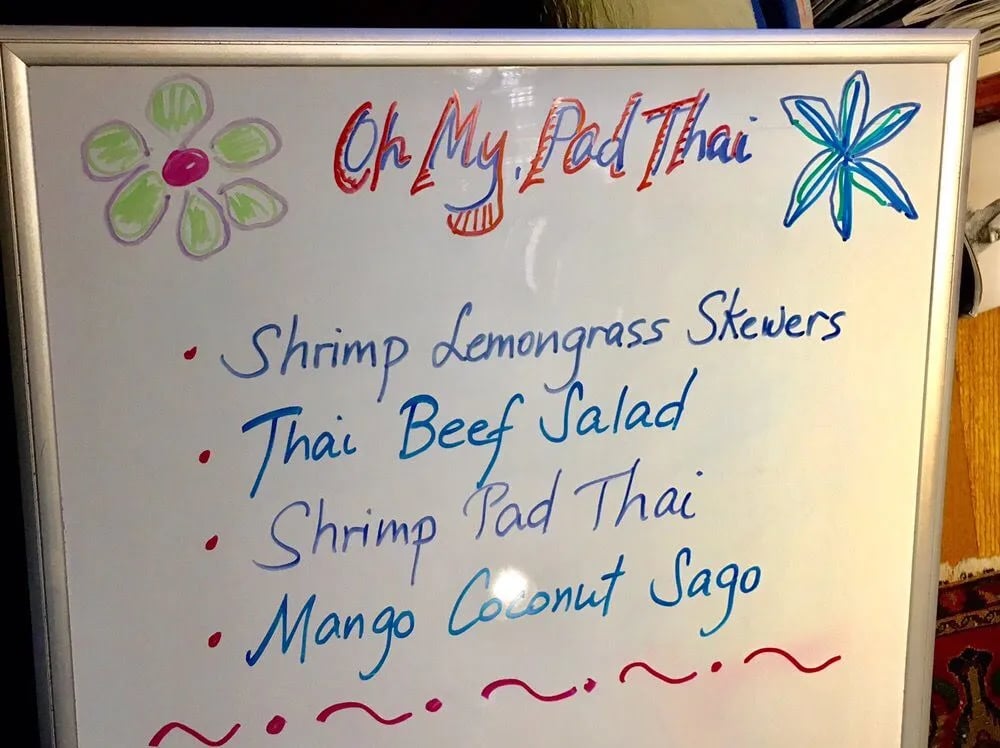 Oh My. Pad Thai
• Shrimp Lemongrass Skewers
• Thai Beef Salad
• Shrimp Pad Thai
• Mango Coconut Sago